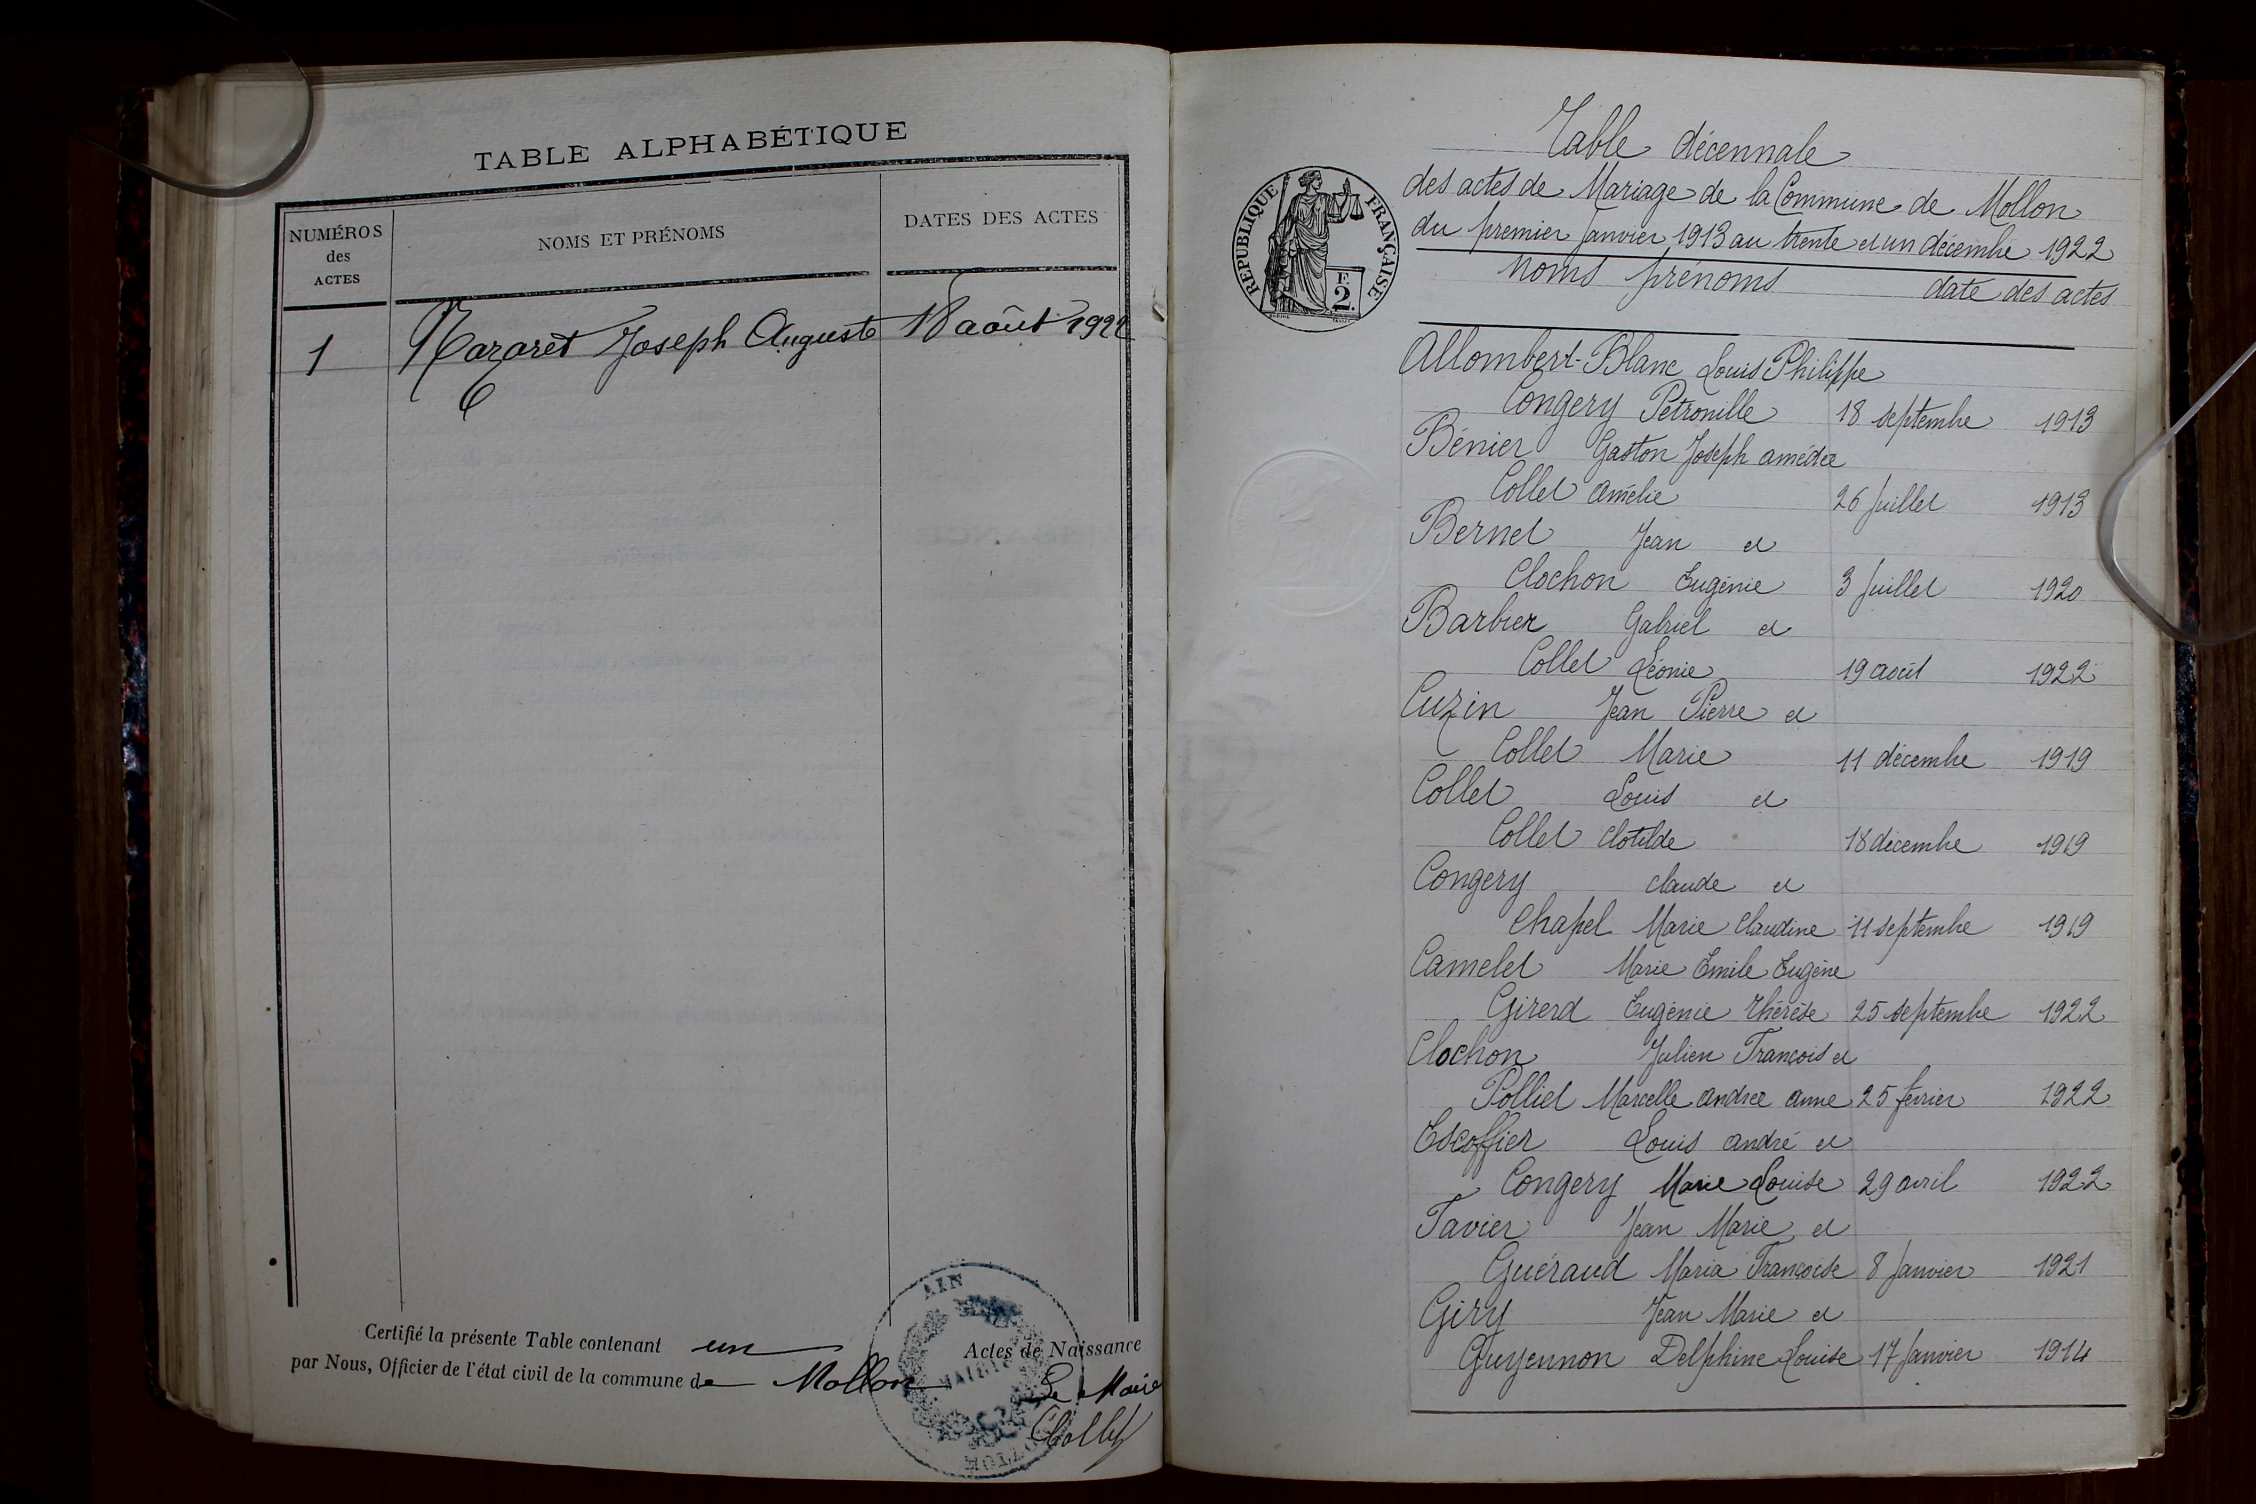 TABLE ALPHABÉTIQUE
NUMÉROS
des
ACTES
NOMS ET PRÉNOMS
DATES DES ACTES
1 Nazaret Joseph Auguste 18 août 1922
Certifié la présente Table contenant un Actes de Naissance
par Nous, Officier de l'état civil de la commune de Mollon
Le Maire
Collet
AIN
MAIRIE
MOLLON
Table décennale
des actes de Mariage de la Commune de Mollon
du premier Janvier 1913 au trente et un décembre 1922
RÉPUBLIQUE FRANÇAISE
F.
2.
Noms prénoms date des actes
Allombert-Blanc Louis Philippe
Congery Petronille 18 septembre 1913
Bénier Gaston Joseph amédée
Collet amélie 26 Juillet 1913
Bernet Jean et
Clochon Eugénie 3 Juillet 1920
Barbier Gabriel et
Collet Léonie 19 août 1922
Cuzin Jean Pierre et
Collet Marie 11 décembre 1919
Collet Louis et
Collet Clotilde 18 décembre 1919
Congery claude et
Chapel Marie claudine 11 septembre 1919
Camelet Marie Emile Eugène
Girerd Eugénie thérèse 25 septembre 1922
Clochon Julien François et
Polliet Marcelle andrée anne 25 février 1922
Escoffier Louis andré et
Congery Marie Louise 29 avril 1922
Favier Jean Marie et
Guéraud Maria Françoise 8 Janvier 1921
Giry Jean Marie et
Guyennon Delphine Louise 17 Janvier 1914